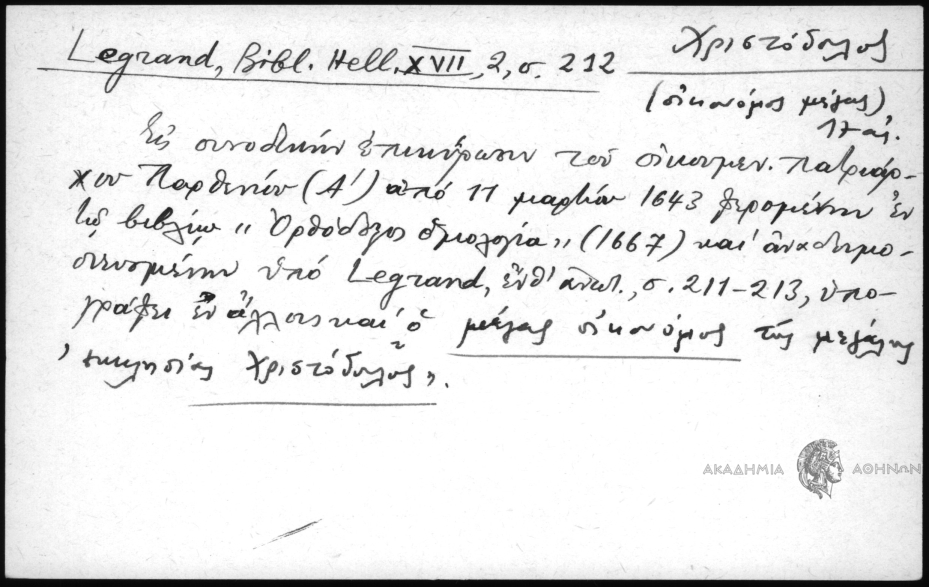 Legrand, Bibl. Hell. XVII, 2, σ. 212
Χριστόδουλος
(οἰκονόμος μέγας)
17 αἰ.
Εἰς συνοδικὴν ἐπικύρωσιν τοῦ οἰκουμεν. πατριάρ-
χου Παρθενίου (Α') ἀπὸ 11 μαρτίου 1643 φερομένην ἐν
τῷ βιβλίῳ "Ὀρθόδοξος ὁμολογία" (1667) καὶ ἀναδημο-
σιευομένην ὑπὸ Legrand, ἔνθ' ἀνωτ., σ. 211-213, ὑπο-
γράφει ἐν ἄλλοις καὶ ὁ "μέγας οἰκονόμος τῆς μεγάλης
ἐκκλησίας Χριστόδουλος".
ΑΚΑΔΗΜΙΑ ΑΘΗΝΩΝ